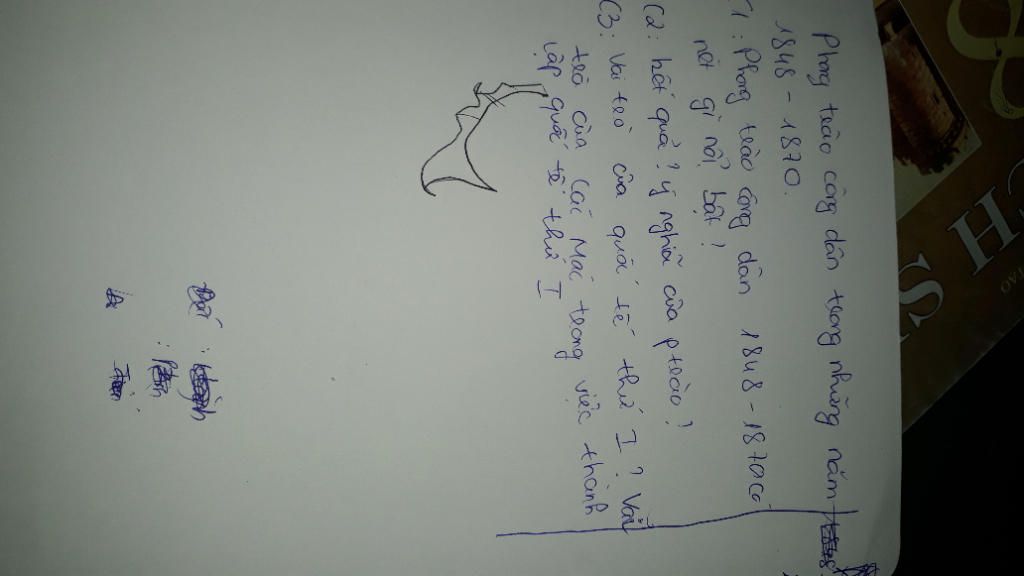 Phong trào công dân trong những năm
1848 - 1870.
C1: Phong trào công dân 1848 - 1870 có
nét gì nổi bật?
C2: kết quả? ý nghĩa của ptrào?
C3: Vai trò của quốc tế thứ I? Vai
trò của Các Mác trong việc thành
lập quốc tế thứ I
CH S